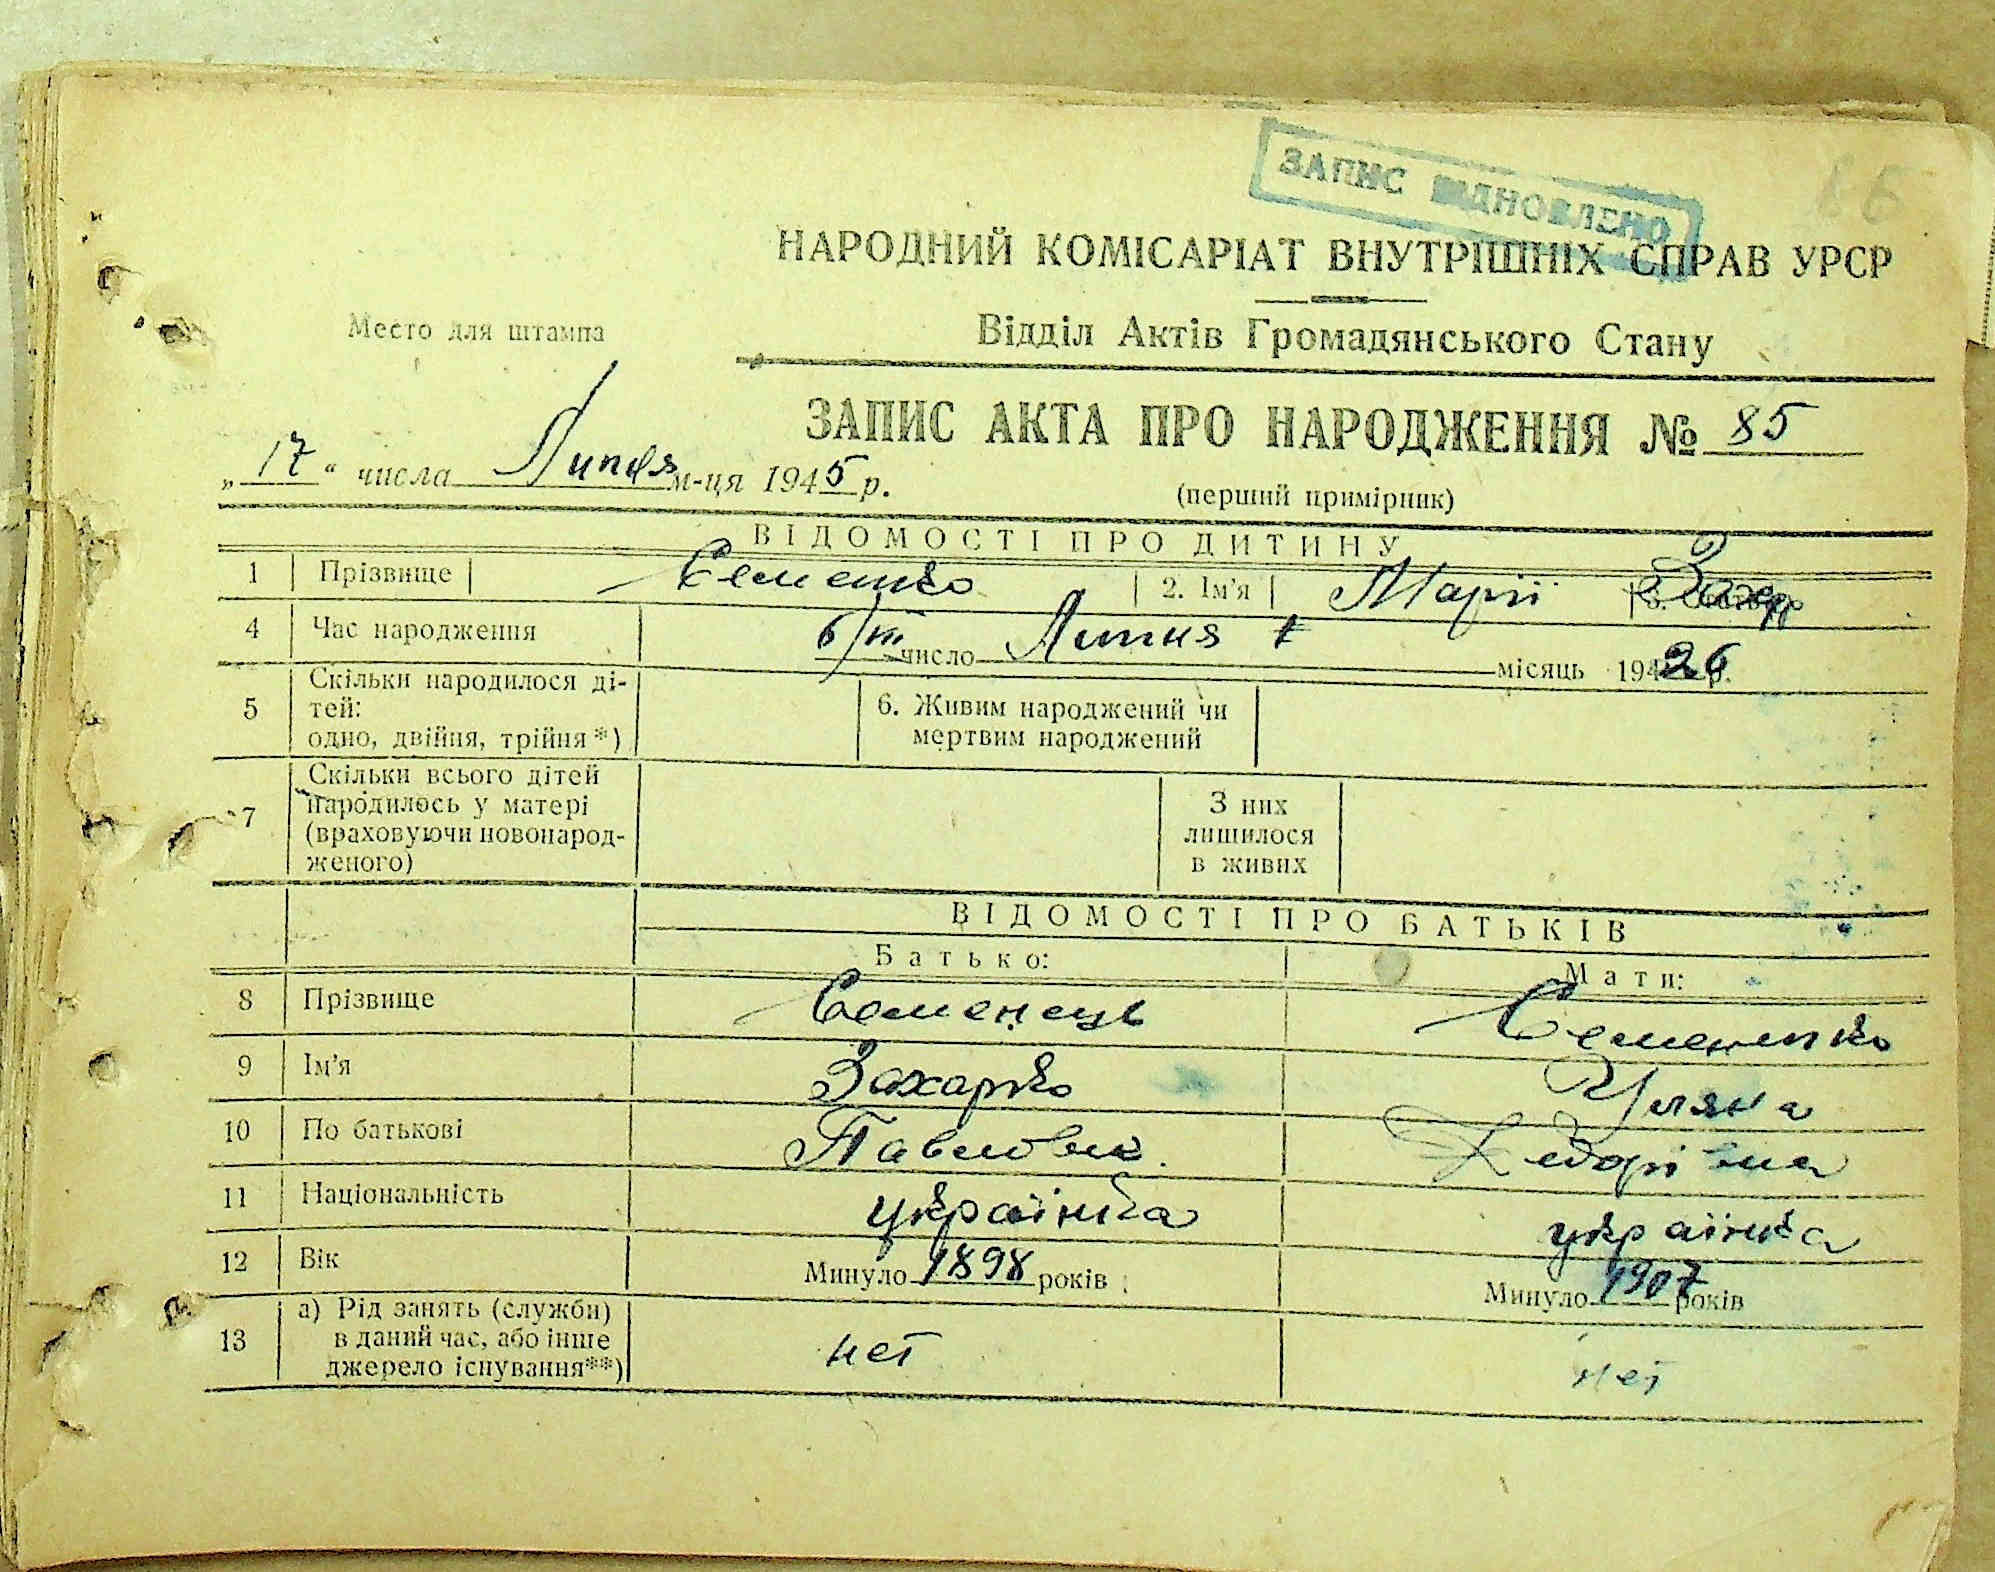 86
ЗАПИС ВІДНОВЛЕНО
НАРОДНИЙ КОМІСАРІАТ ВНУТРІШНІХ СПРАВ УРСР
Место для штампа
Відділ Актів Громадянського Стану
ЗАПИС АКТА ПРО НАРОДЖЕННЯ № 85
„17“ числа Липня м-ця 1945 р.
(перший примірник)
ВІДОМОСТІ ПРО ДИТИНУ
1 Прізвище Семенко 2. Ім'я Марії 3. Захар
4 Час народження 6/III число Липня місяць 194 26 р.
5 Скільки народилося ді-
тей:
одно, двійня, трійня*)
6. Живим народжений чи
мертвим народжений
7 Скільки всього дітей
народилось у матері
(враховуючи новонарод-
женого)
З них
лишилося
в живих
ВІДОМОСТІ ПРО БАТЬКІВ
Батько: Мати:
8 Прізвище Семенець Семененко
9 Ім'я Захарко Уляна
10 По батькові Павлович Федорівна
11 Національність українка українка
12 Вік Минуло 1898 років Минуло 1907 років
13 а) Рід занять (служби)
в даний час, або інше
джерело існування**)
нет нет